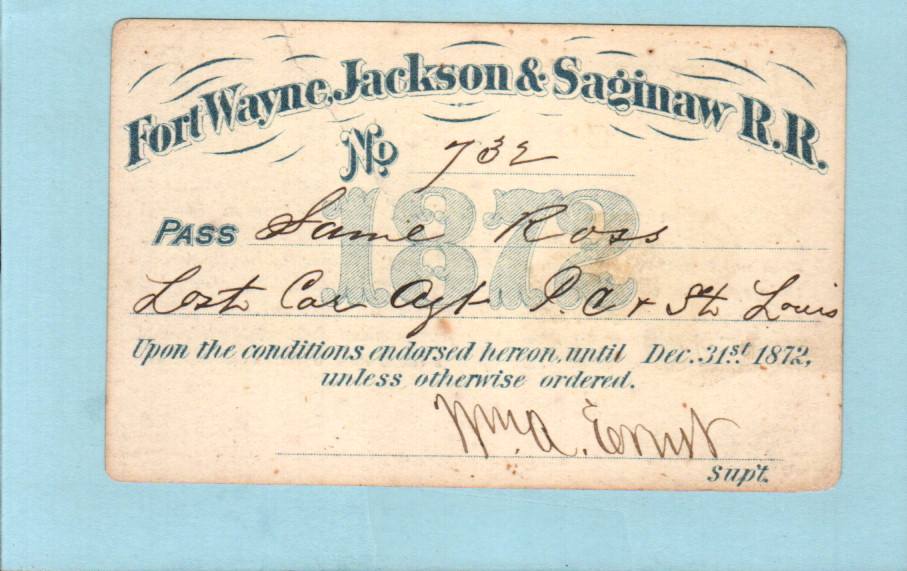 Fort Wayne, Jackson & Saginaw R.R.
No 732
1872
PASS Ross
Lost Car Agt P. C & St Louis
Upon the conditions endorsed hereon, until Dec. 31st 1872,
unless otherwise ordered.
Wm. A. Ernst
Supt.